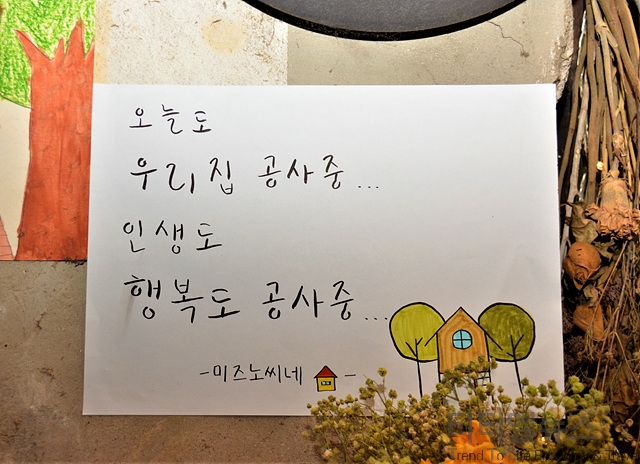 오늘도
우리집 공사중...
인생도
행복도 공사중...
-미즈노씨네 -
Trend To